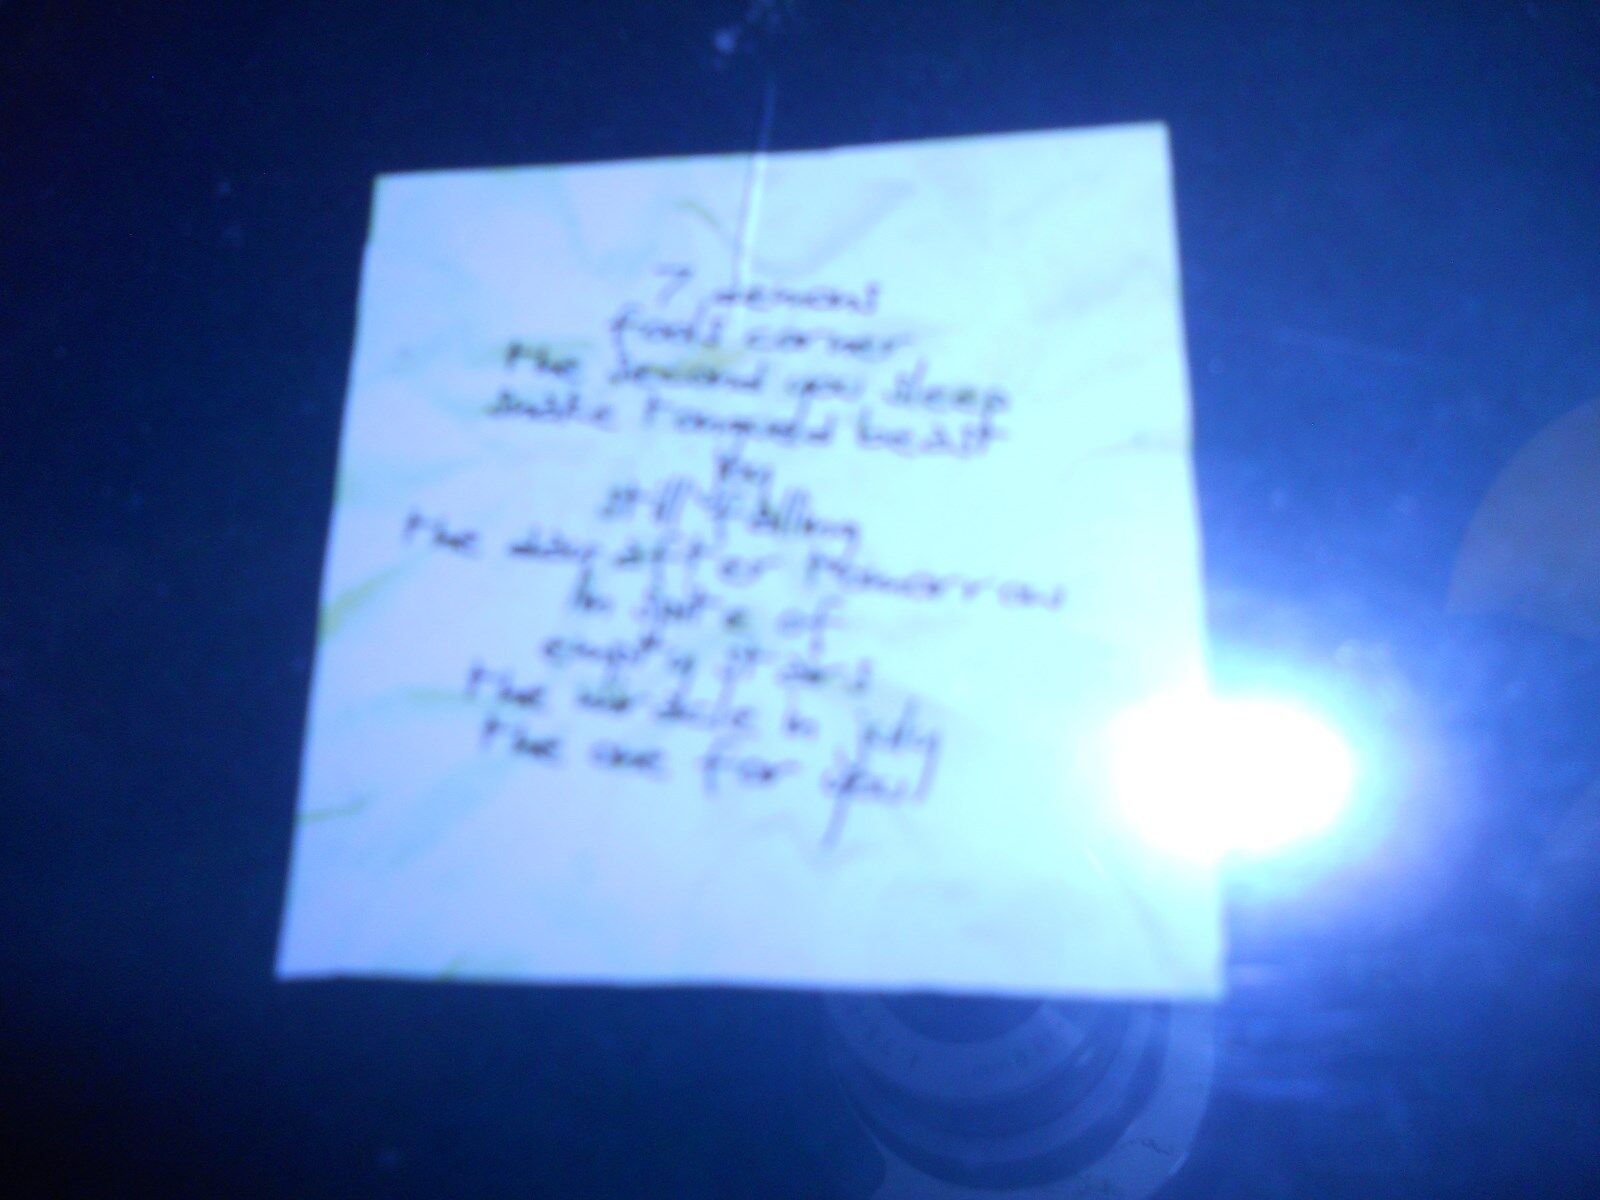 7 demons
fools corner
the second you sleep
snake tongued beast
Key
still falling
the day after tomorrow
In spite of
empty stars
the miracle in july
the one for you